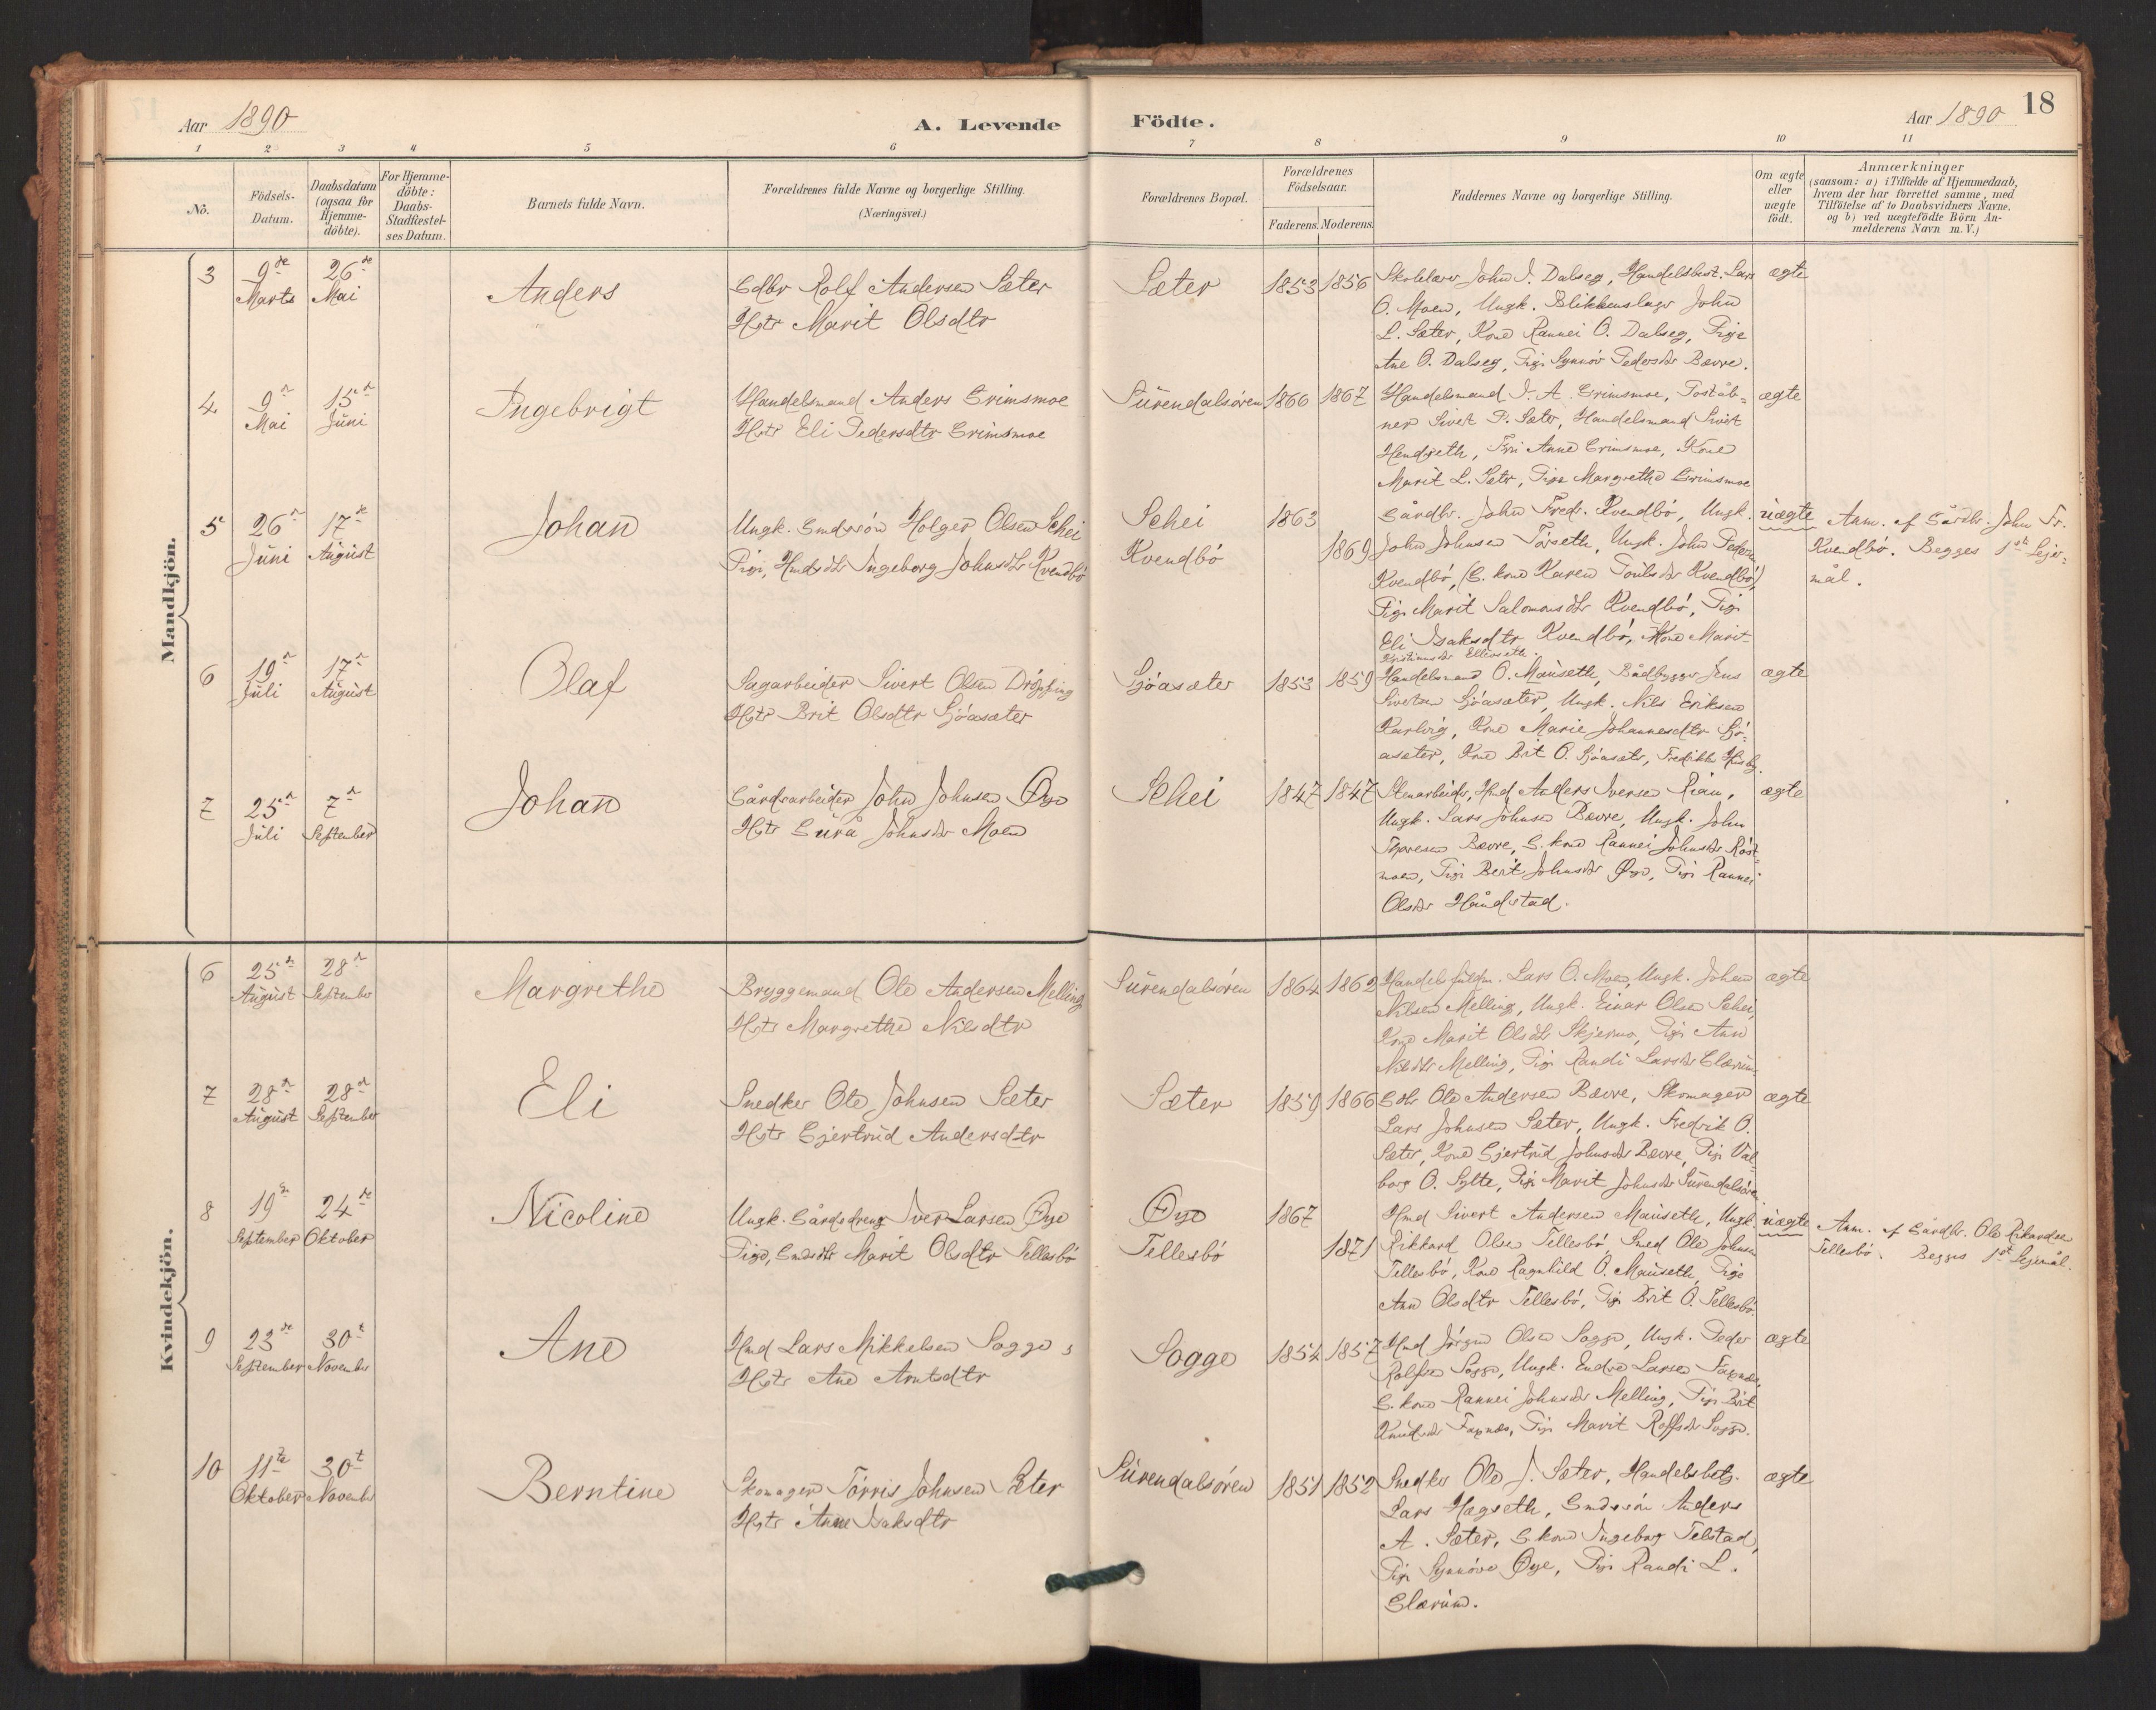 Aar 1890
A. Levende
Födte.
Aar 1890
18
1 2 3 4 5 6 7 8 9 10 11
No.
Födsels-
Datum.
Daabsdatum
(ogsaa for
Hjemme-
döbte).
For Hjemme-
döbte:
Daabs-
Stadfæstel-
ses Datum.
Barnets fulde Navn.
Forældrenes fulde Navne og borgerlige Stilling.
(Næringsvei.)
Forældrenes Bopæl.
Forældrenes
Födselsaar.
Faderens. Moderens.
Faddernes Navne og borgerlige Stilling.
Om ægte
eller
uægte
födt.
Anmærkninger
(saasom: a) i Tilfælde af Hjemmedaab,
hvem der har forrettet samme, med
Tilföielse af to Daabsvidners Navne.
og b) ved uægtefödte Börn An-
melderens Navn m. V.)
Mandkjön.
3
9de
Marts
26de
Mai
Anders
Gdbr Rolf Andersen Sæter
Hstr Marit Olsdtr
Sæter
1853 1856
Skolelærer John J. Dalseg, Handelsbest. Lars
O. Moen, Ungk. Blikkenslager John
L. Sæter, Kone Rannei O. Dalseg, Pige
Ane O. Dalseg, Pige Synnöv Pedersdtr Bævre.
ægte
4
9n
Mai
15n
Juni
Ingebrigt
Handelsmand Anders Grimsmoe
Hstr Eli Pedersdtr Grimsmoe
Surendalsören
1866 1867
Handelsmand J. A. Grimsmoe, Postáb-
ner Sivert P. Sæter, Handelsmand Sivert
Hendseth, Frk Anne Grimsmoe, Kone
Marit L. Sæter, Pige Margrethe Grimsmoe
ægte
5
26n
Juni
17de
August
Johan
Ungk. Gmdssön Holger Olsen Schei
Pige, Hmdsdtr Ingeborg Johnsdtr Kvendbö
Schei
Kvendbö
1863
1869
Gårdbr. John Fredr. Kvendbö, Ungk.
John Johnsen Törseth, Ungk. John Pedersen
Kvendbö, (G. kone Karen Poulsdtr Kvendbö),
Pige Marit Salomonsdtr Kvendbö, Pige
Eli Isaksdtr Kvendbö, Kone Marit
Kristiansdtr Ellevseth.
uægte
Anm. af Gårdbr. John Fr.
Kvendbö. Begges 1ste Lejer-
mål.
6
19n
Juli
17n
August
Olaf
Sagarbeider Sivert Olsen Dröpping
Hstr Brit Olsdtr Sjöasæter
Sjöasæter
1853 1859
Handelsmand O. Mauseth, Bådbygger Jens
Sivertsen Sjöasæter, Ungk. Nils Eriksen
Karlvig, Kone Marie Johannesdtr Sjö-
asæter, Kone Brit O. Sjöasæter, Fredrikke Husby.
ægte
7
25n
Juli
7n
September
Johan
Gårdsarbeider John Johnsen Öye
Hstr Gurå Johnsdtr Moen
Schei
1847 1847
Stenarbeider, Hmd Anders Iversen Rian,
Ungk. Lars Johnsen Bævre, Ungk. John
Thoresen Bævre, G. kone Rannei Johnsdtr Röst-
moen, Pige Berit Johnsdtr Öye, Pige Rannei
Olsdtr Håndstad.
ægte
Kvindekjön.
6
25de
August
28n
September
Margrethe
Bryggemand Ole Andersen Melling
Hstr Margrethe Nilsdtr
Surendalsören
1864 1862
Handelsfuldm. Lars O. Moen, Ungk. Johan
Nilsen Melling, Ungk. Einar Olsen Schei,
Kone Marit Olsdtr Skjermo, Pige Ann
Nilsdtr Melling, Pige Randi Larsdtr Glærum.
ægte
7
28n
August
28n
September
Eli
Snedker Ole Johnsen Sæter
Hstr Gjertrud Andersdtr
Sæter
1859 1866
Gdbr Ole Andersen Bævre, Skomager
Lars Johnsen Sæter, Ungk. Fredrik O.
Sæter, Kone Gjertrud Johnsdtr Bævre, Pige Val-
borg O. Sylte, Pige Marit Johnsdtr Surendalsören.
ægte
8
19de
September
24de
Oktober
Nicoline
Ungk. Gårdsdreng Iver Larsen Öye
Pige, Gmdsdtr Marit Olsdtr Tellesbö
Öye
Tellesbö
1867
1871
Hmd Sivert Andersen Mauseth, Ungk.
Rikkard Olsen Tellesbö, Smed Ole Johnsen
Tellesbö, Kone Ragnhild O. Mauseth, Pige
Ann Olsdtr Tellesbö, Pige Brit O. Tellesbö.
uægte
Anm. af Gårdbr. Ole Rikardsen
Tellesbö. Begges 1st Lejermål.
9
23de
September
30t
November
Ane
Hmd Lars Mikkelsen Sogge
Hstr Ane Arntsdtr
Sogge
1854 1857
Hmd Jörgen Olsen Sogge, Ungk. Peder
Rolfsen Sogge, Ungk. Endre Larsen Faxnæs,
G. kone Rannei Johnsdtr Melling, Pige Brit
Knudsdtr Faxnæs, Pige Marit Rolfsdtr Sogge.
ægte
10
11te
Oktober
30t
November
Berntine
Skomager Törris Johnsen Sæter
Hstr Anne Isaksdtr
Surendalsören
1851 1852
Snedker Ole J. Sæter, Handelsbetj.
Lars Hagseth, Gmdssön Anders
A. Sæter, G. kone Ingeborg Telstad,
Pige Synnöve Öye, Pige Randi L.
Glærum.
ægte